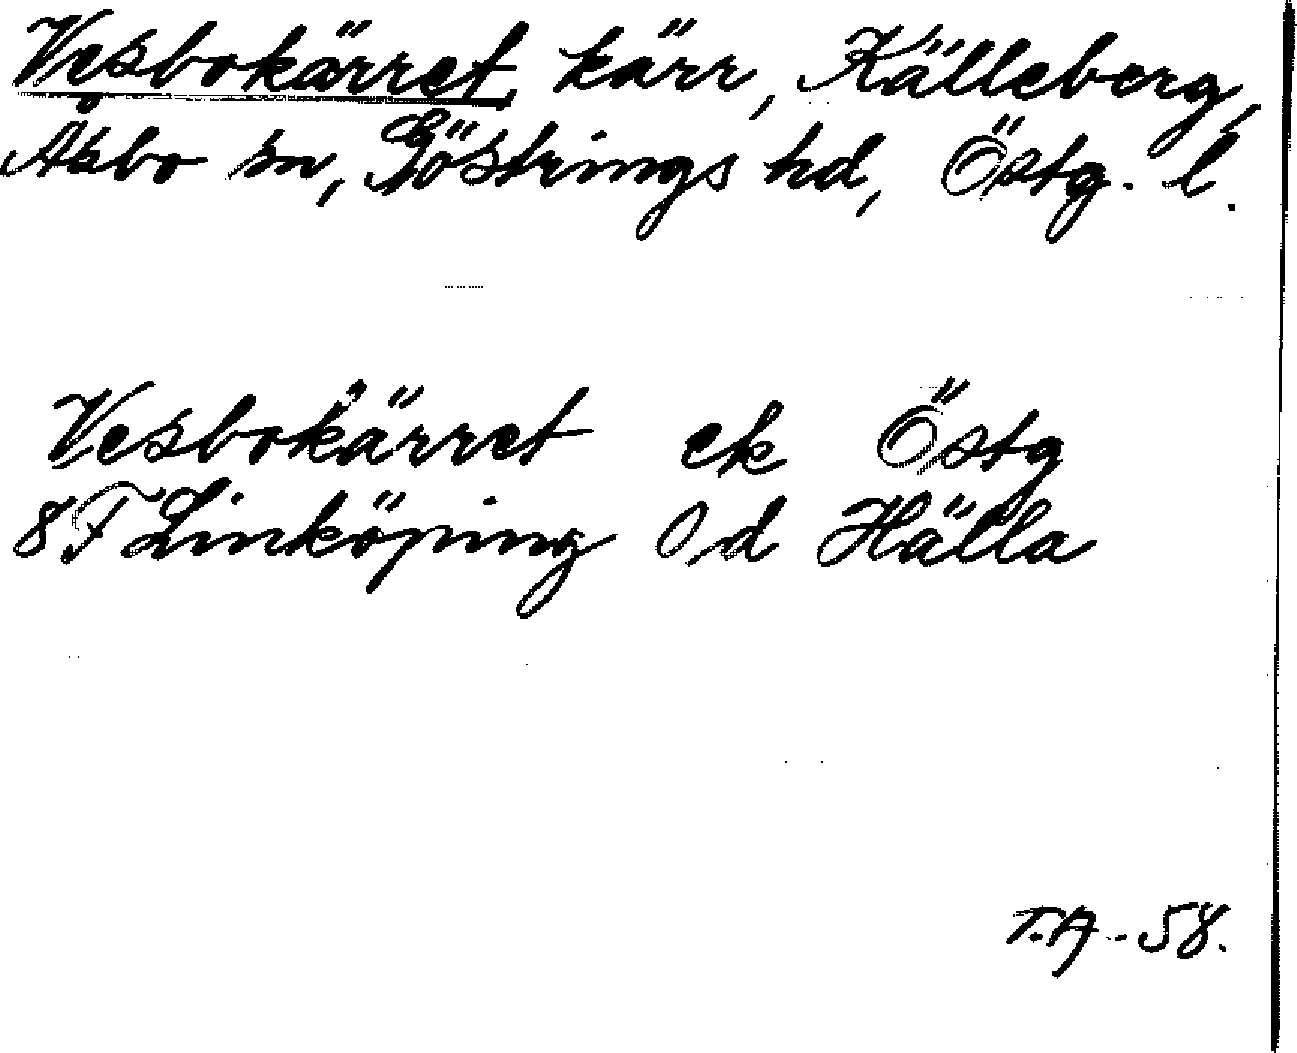 Vesbokärret, kärr, Källeberg,
Åsbo sn, Göstrings hd, Östg. l.
Vesbokärret ek Östg
8F Linköping 0 d Hälla
T.A -58.